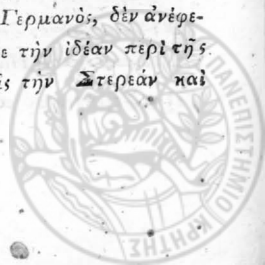 Γερμανὸς, δὲν ἀνέφε-
ε τὴν ἰδέαν περὶ τῆς
ς τὴν Στερεάν καὶ
ΠΑΝΕΠΙΣΤΗΜΙΟ ΚΡΗΤΗΣ